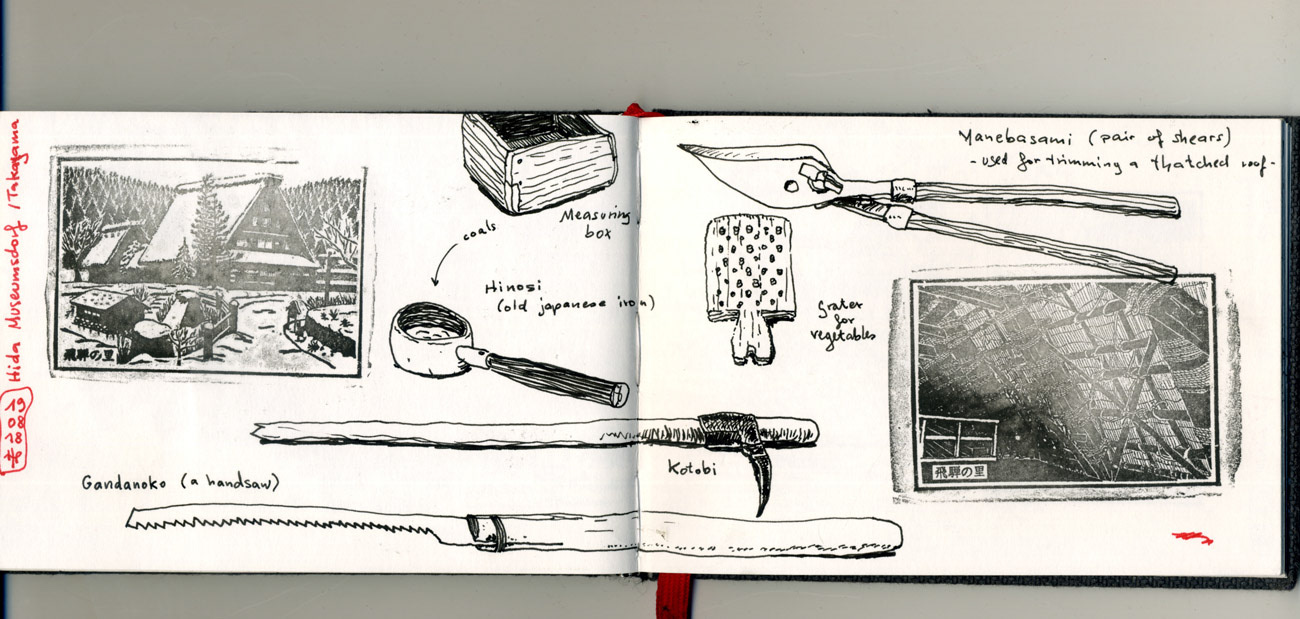 Hida Museumsdorf / Takayama
Measuring
box
coals
Hinosi
(old japanese iron)
飛騨の里
Gandanoko (a handsaw)
Yanebasami (pair of shears)
- used for trimming a thatched roof -
Grater
for
vegetables
Kotobi
飛騨の里